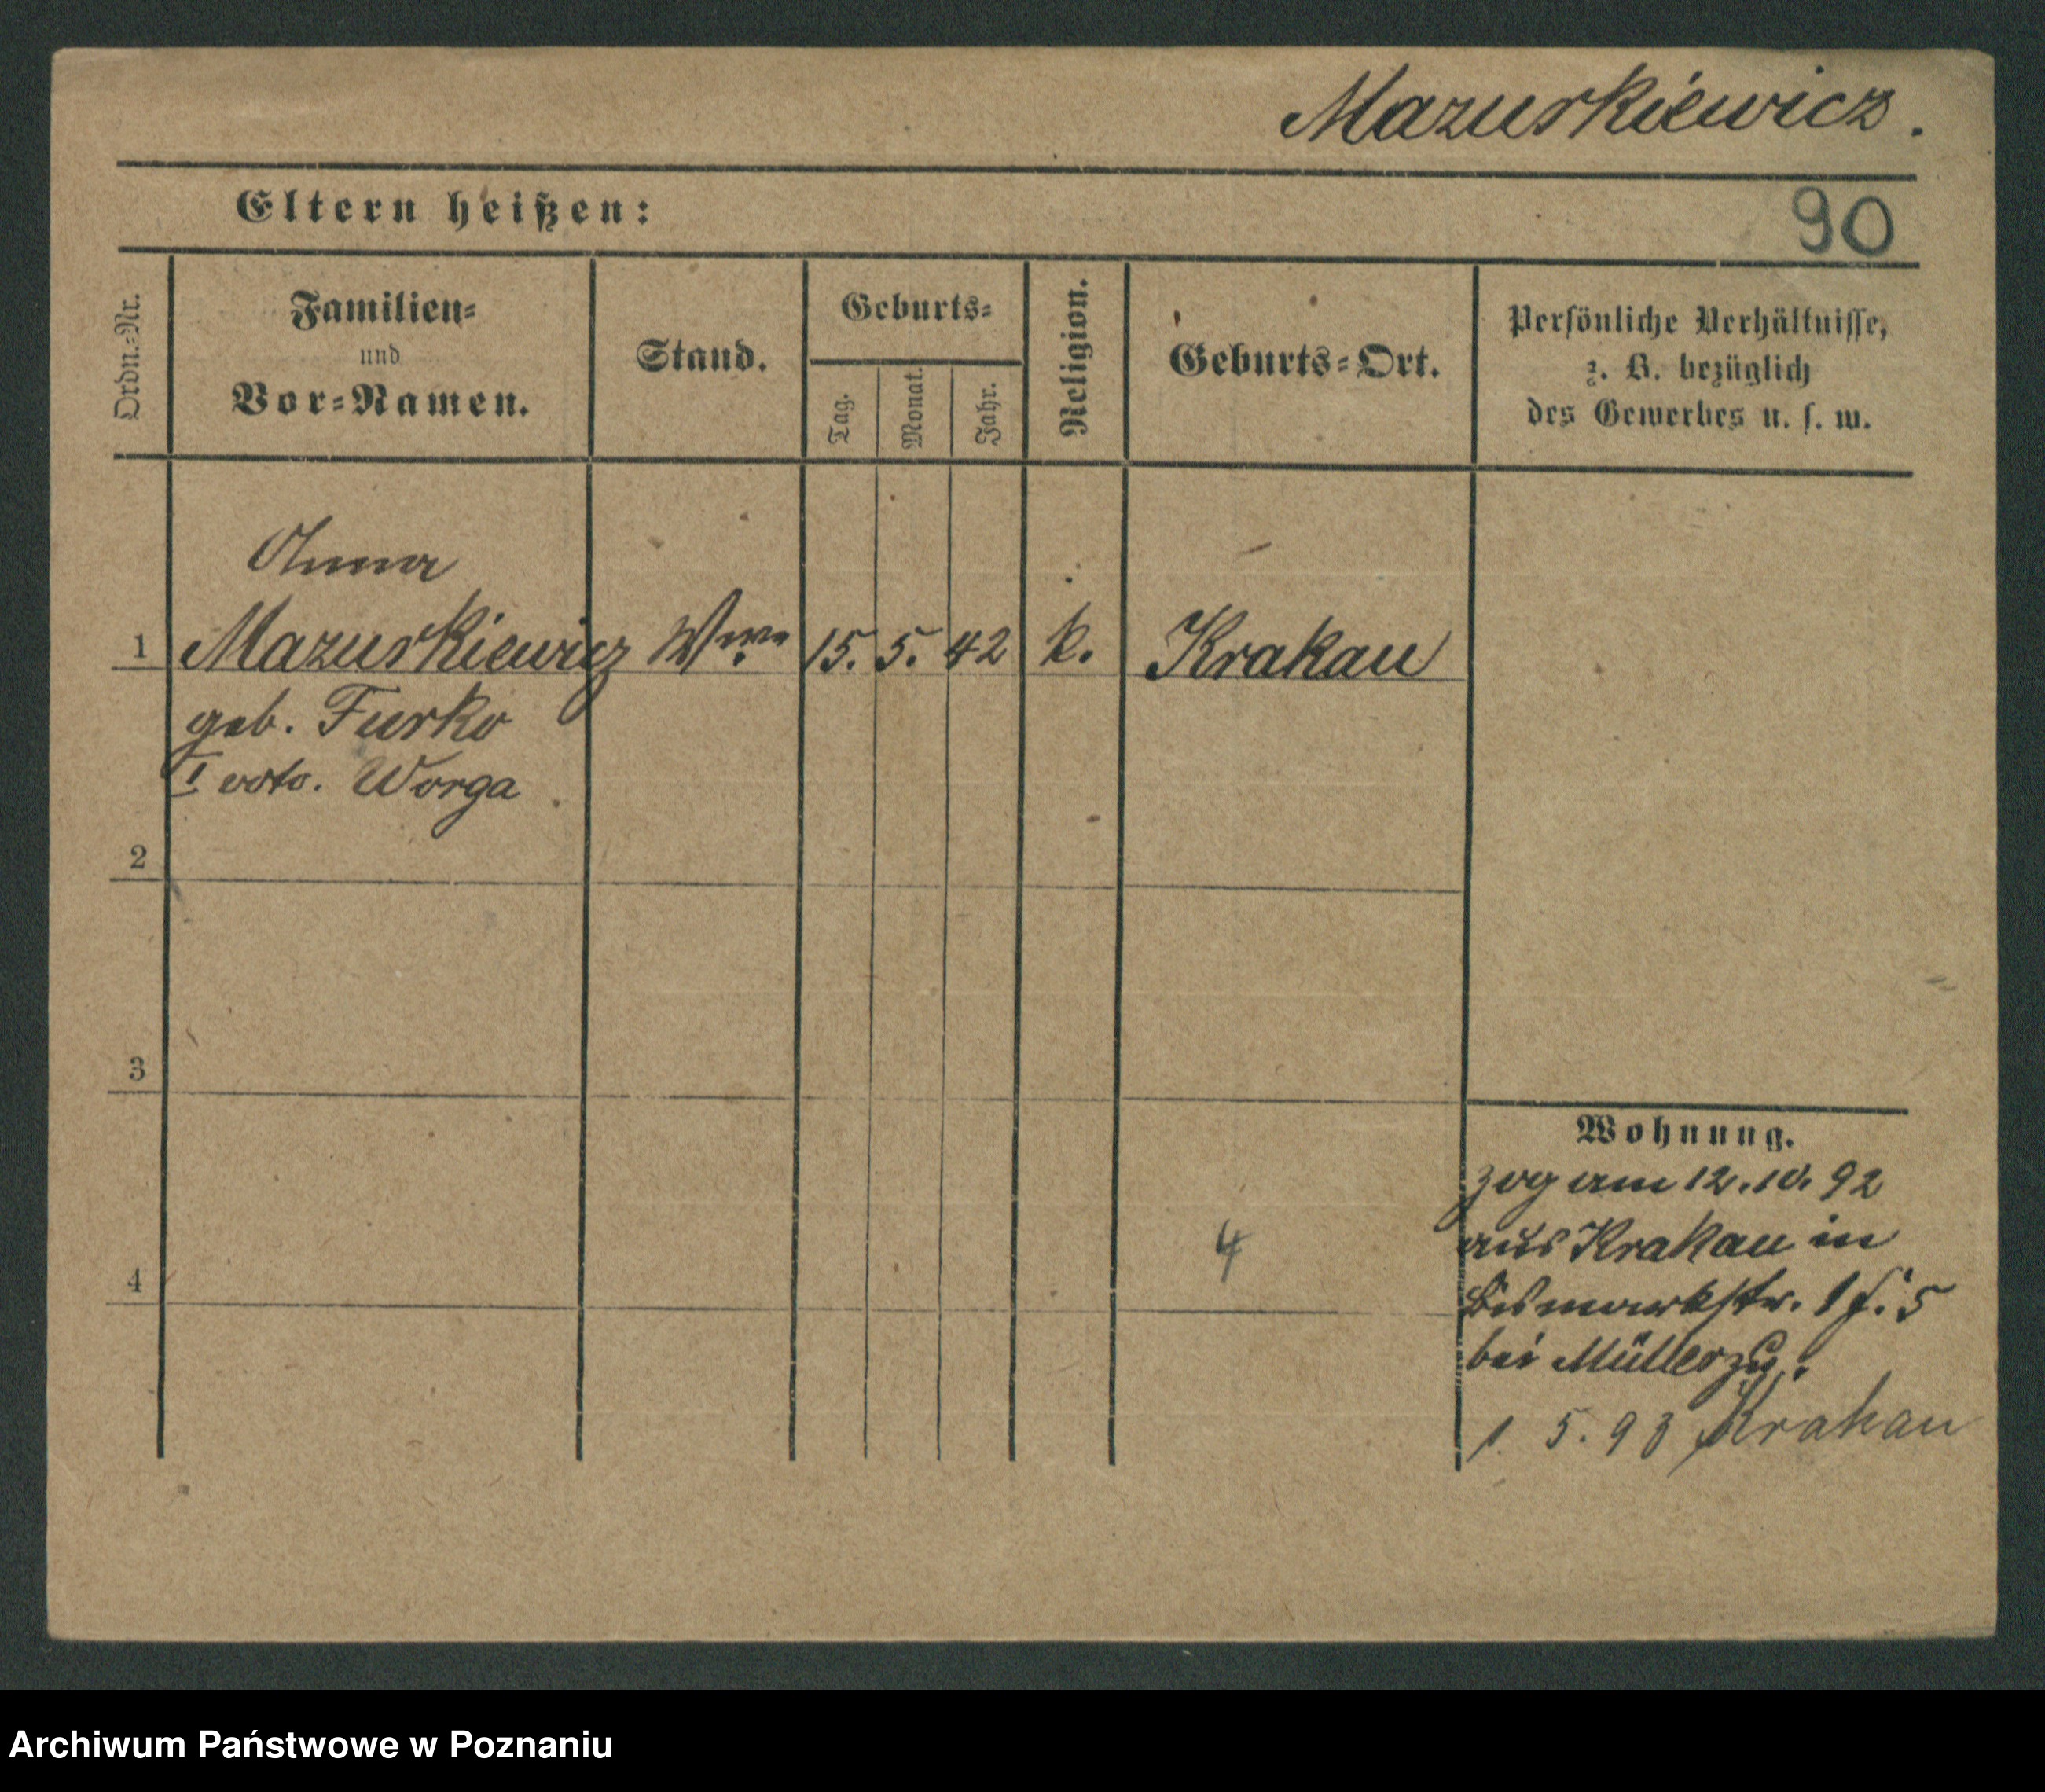 Mazurkiewicz.
Eltern heißen:
90
Ordn.-Nr.
Familien-
und
Vor-Namen.
Stand.
Geburts-
Tag.
Monat.
Jahr.
Religion.
Geburts-Ort.
Persönliche Verhältnisse,
z. B. bezüglich
des Gewerbes u. s. w.
Anna
1 Mazurkiewicz Wwe 15. 5. 42 k. Krakau
geb. Furko
I voto. Worga
2
3
4
4
Wohnung.
zog am 12.10.92
aus Krakau in
Bismarkstr. 1 f. 5
bei Müller zu.
1. 5. 93 Krakau
Archiwum Państwowe w Poznaniu